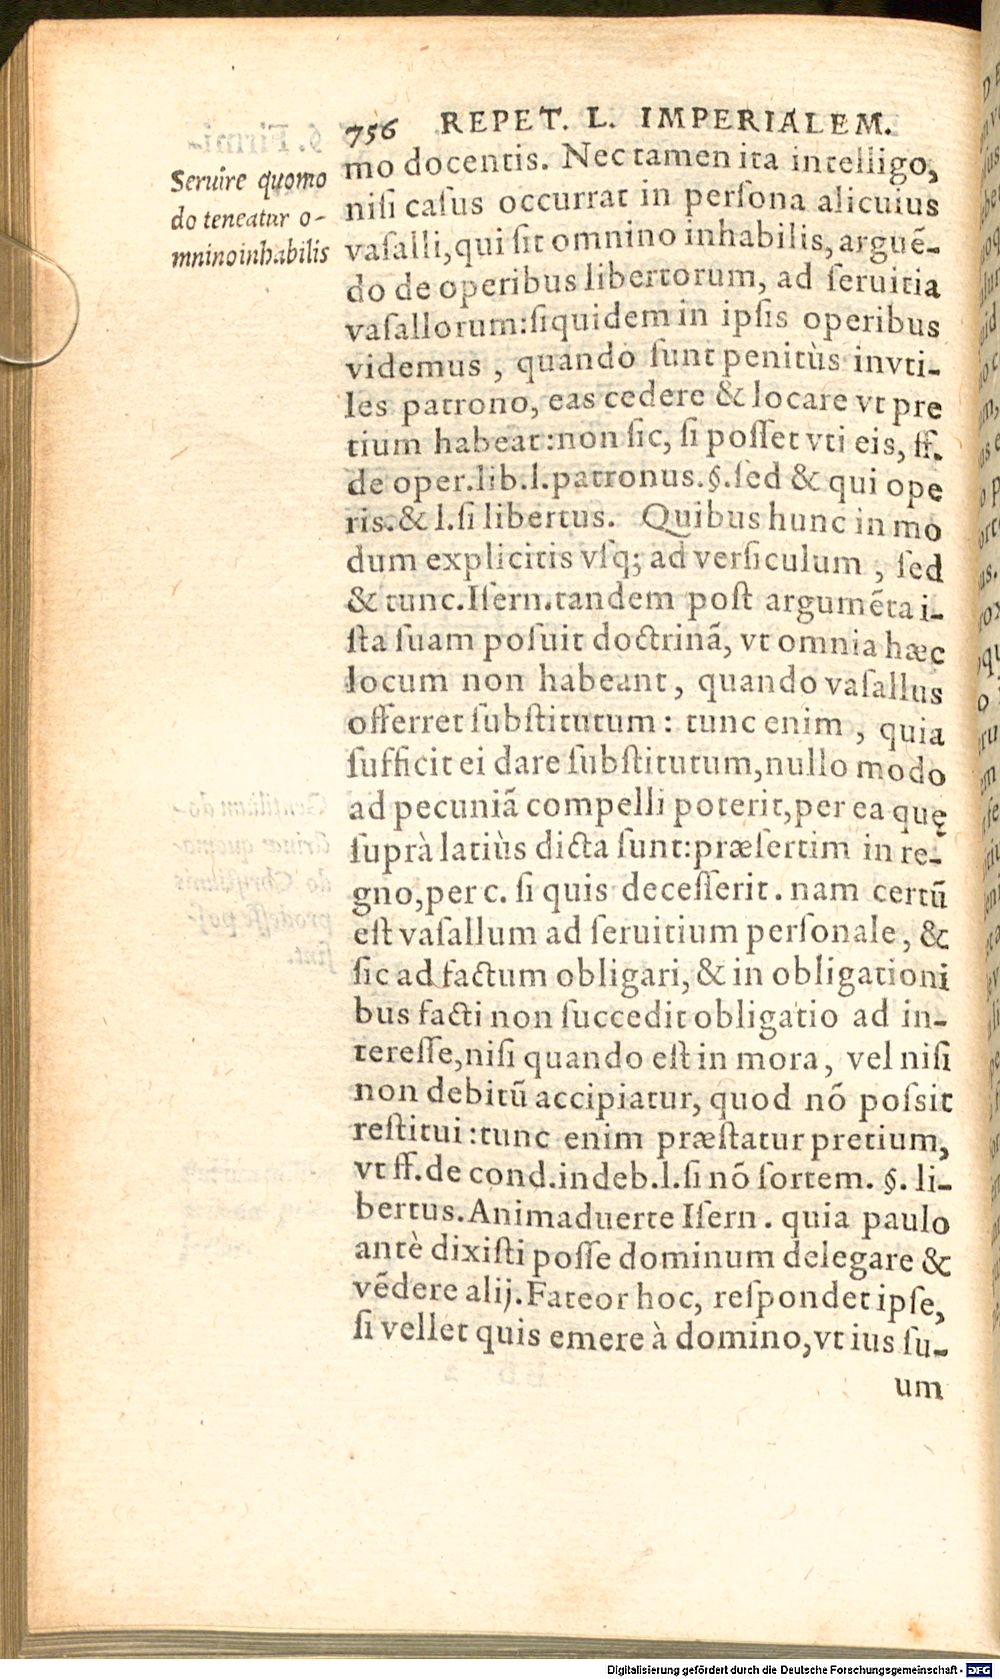 756 REPET. L. IMPERIALEM.
Seruire quomo
do teneatur o-
mninoinhabilis
mo docentis. Nec tamen ita intelligo,
niſi caſus occurrat in perſona alicuius
vaſalli, qui ſit omnino inhabilis, arguẽ-
do de operibus libertorum, ad ſeruitia
vaſallorum: ſiquidem in ipſis operibus
videmus, quando ſunt penitùs invti-
les patrono, eas cedere & locare vt pre
tium habeat: non ſic, ſi poſſet vti eis, ff.
de oper. lib. l. patronus. §. ſed & qui ope
ris. & l. ſi libertus. Quibus hunc in mo
dum explicitis vſq; ad verſiculum, ſed
& tunc. Iſern. tandem poſt argumẽta i-
ſta ſuam poſuit doctrinã, vt omnia hæc
locum non habeant, quando vaſallus
offerret ſubſtitutum: tunc enim, quia
ſufficit ei dare ſubſtitutum, nullo modo
ad pecuniã compelli poterit, per ea quę
ſuprà latiùs dicta ſunt: præſertim in re-
gno, per c. ſi quis deceſſerit. nam certũ
eſt vaſallum ad ſeruitium perſonale, &
ſic ad factum obligari, & in obligationi
bus facti non ſuccedit obligatio ad in-
tereſſe, niſi quando eſt in mora, vel niſi
non debitũ accipiatur, quod nõ poſsit
reſtitui: tunc enim præſtatur pretium,
vt ff. de cond. indeb. l. ſi nõ ſortem. §. li-
bertus. Animaduerte Iſern. quia paulo
antè dixiſti poſſe dominum delegare &
vẽdere alij. Fateor hoc, reſpondet ipſe,
ſi vellet quis emere à domino, vt ius ſu-
um
Digitalisierung gefördert durch die Deutsche Forschungsgemeinschaft - DFG